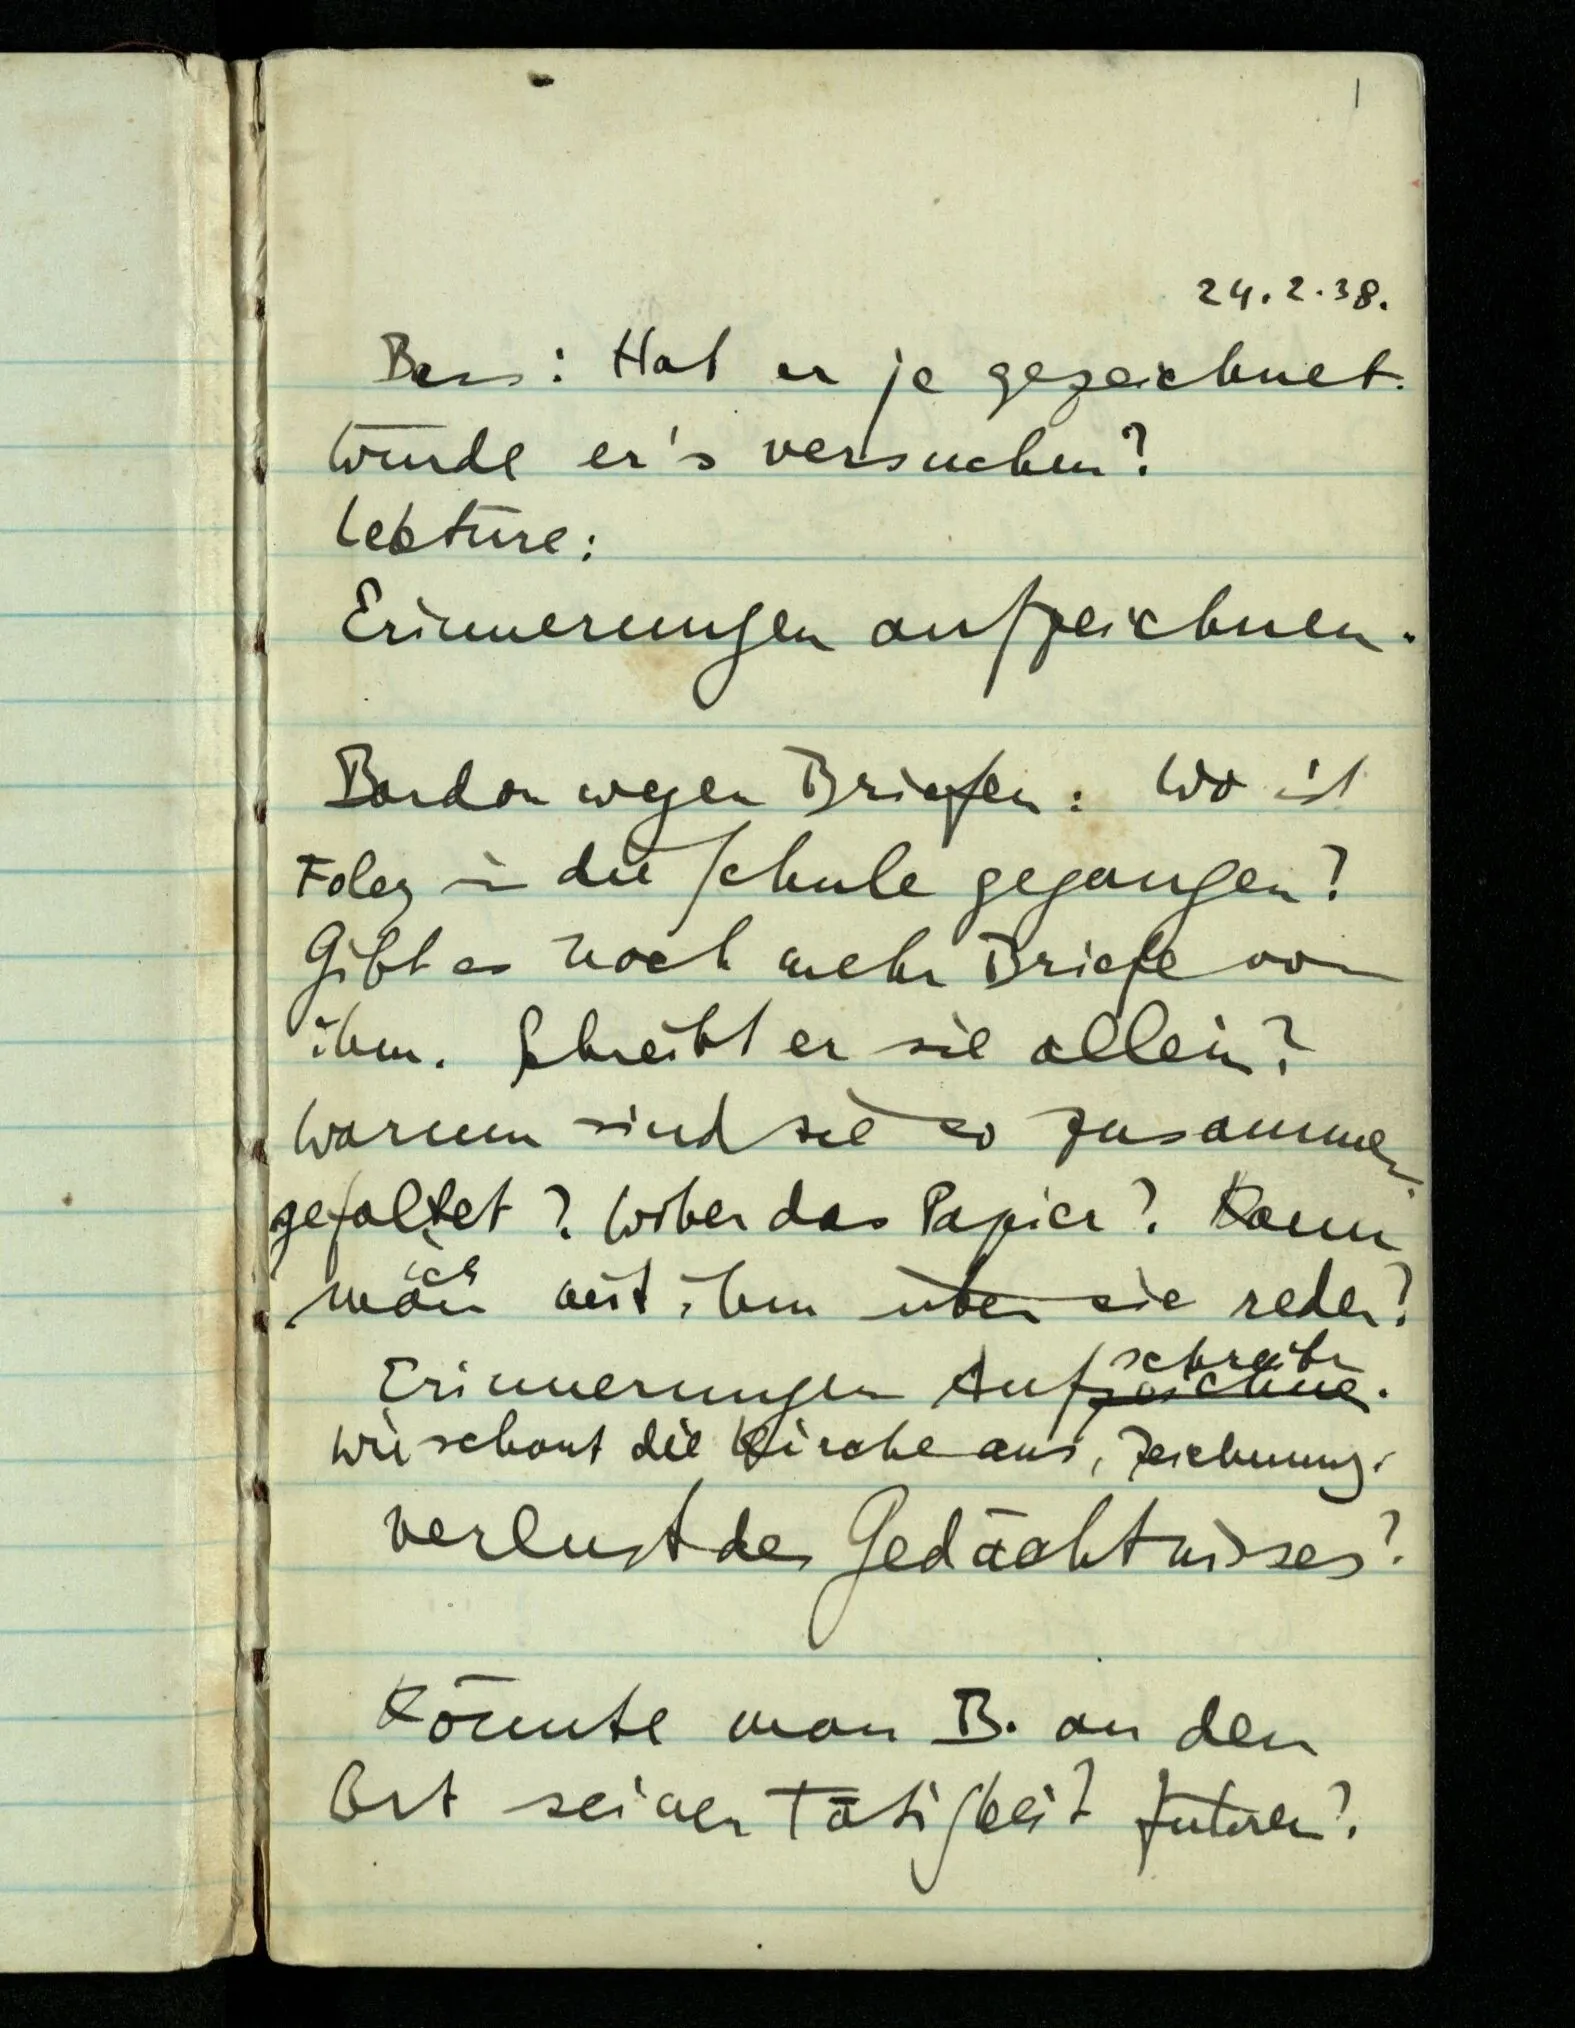 1
24.2.38.
: Hat er je gezeichnet.
Würde er's versuchen?
Lektüre:
Erinnerungen aufzeichnen.
wegen Briefen: Wo ist
Foley in die Schule gegangen?
Gibt es noch mehr Briefe von
ihm. Schreibt er sie allein?
Warum sind sie so zusammen
gefaltet? Woher das Papier? Kann
ich
man mit ihm über sie reden?
schreibn
Erinnerungen Aufzeichne.
Wie schaut die Kirche aus, Zeichnung.
Verlust des Gedächtnisses?
Könnte man B. an den
Ort seiner Tätigkeit führen?